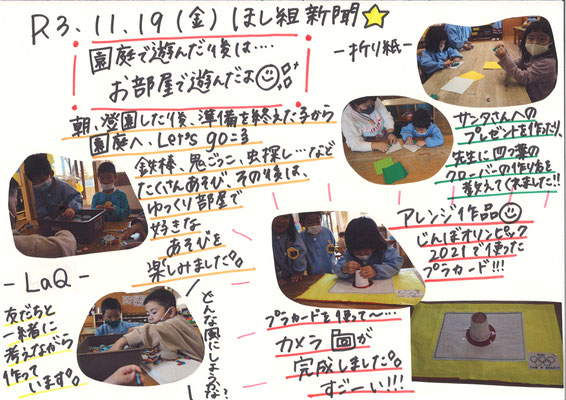 R3.11.19(金)ほし組新聞
園庭で遊んだり後は‥‥
お部屋で遊んだよ
朝、登園した後、準備を終えた子から
園庭へ、Let's go=3
鉄棒、鬼ごっこ、虫探し…など
たくさんあそび、その後は、
ゆっくり部屋で
好きな
あそびを
楽しみました。
-折り紙-
サンタさんへの
プレゼントを作ったり、
先生に四つ葉の
クローバーの作り方を
教えてくれました!!
アレンジ作品
じんぼオリンピック
2021で使った
プラカード!!!
プラカードを使って〜…
カメラが
完成しました。
すごーい!!!
-LaQ-
友だちと
一緒に
考えながら
作って
います。
どんな風にしようかな?